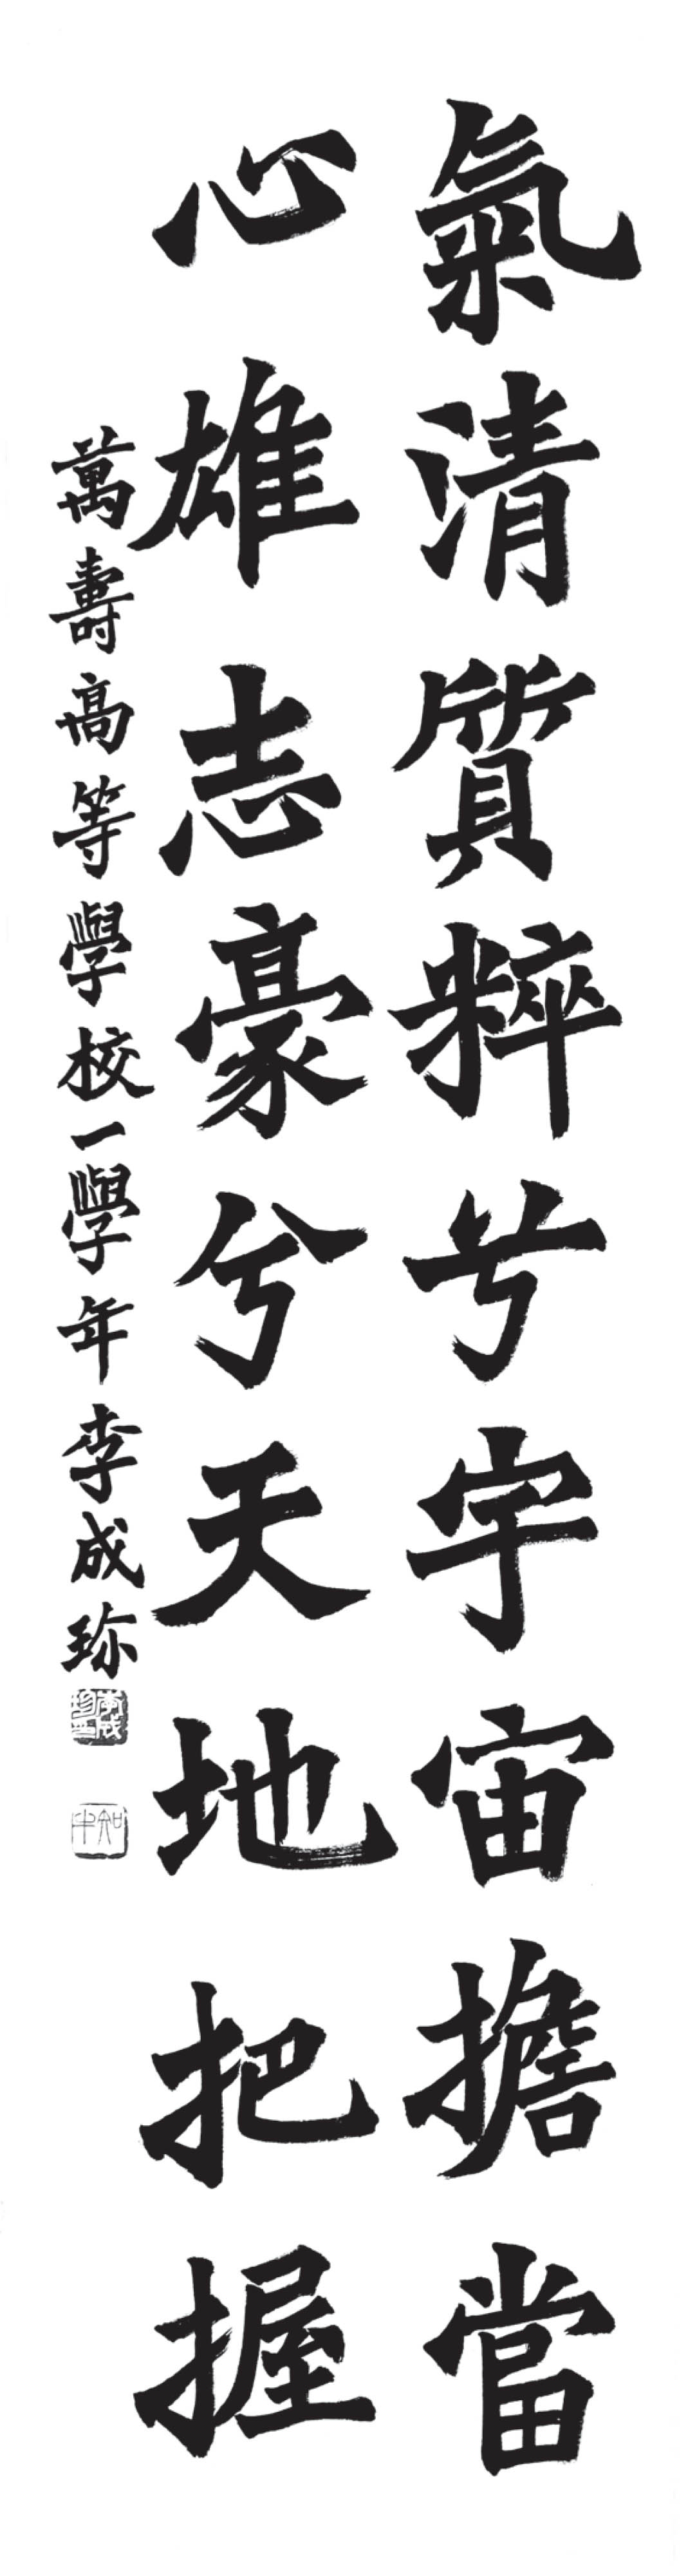 氣清質粹兮宇宙擔當
心雄志豪兮天地把握
萬壽高等學校一學年李成珎
李成珍印
知牛